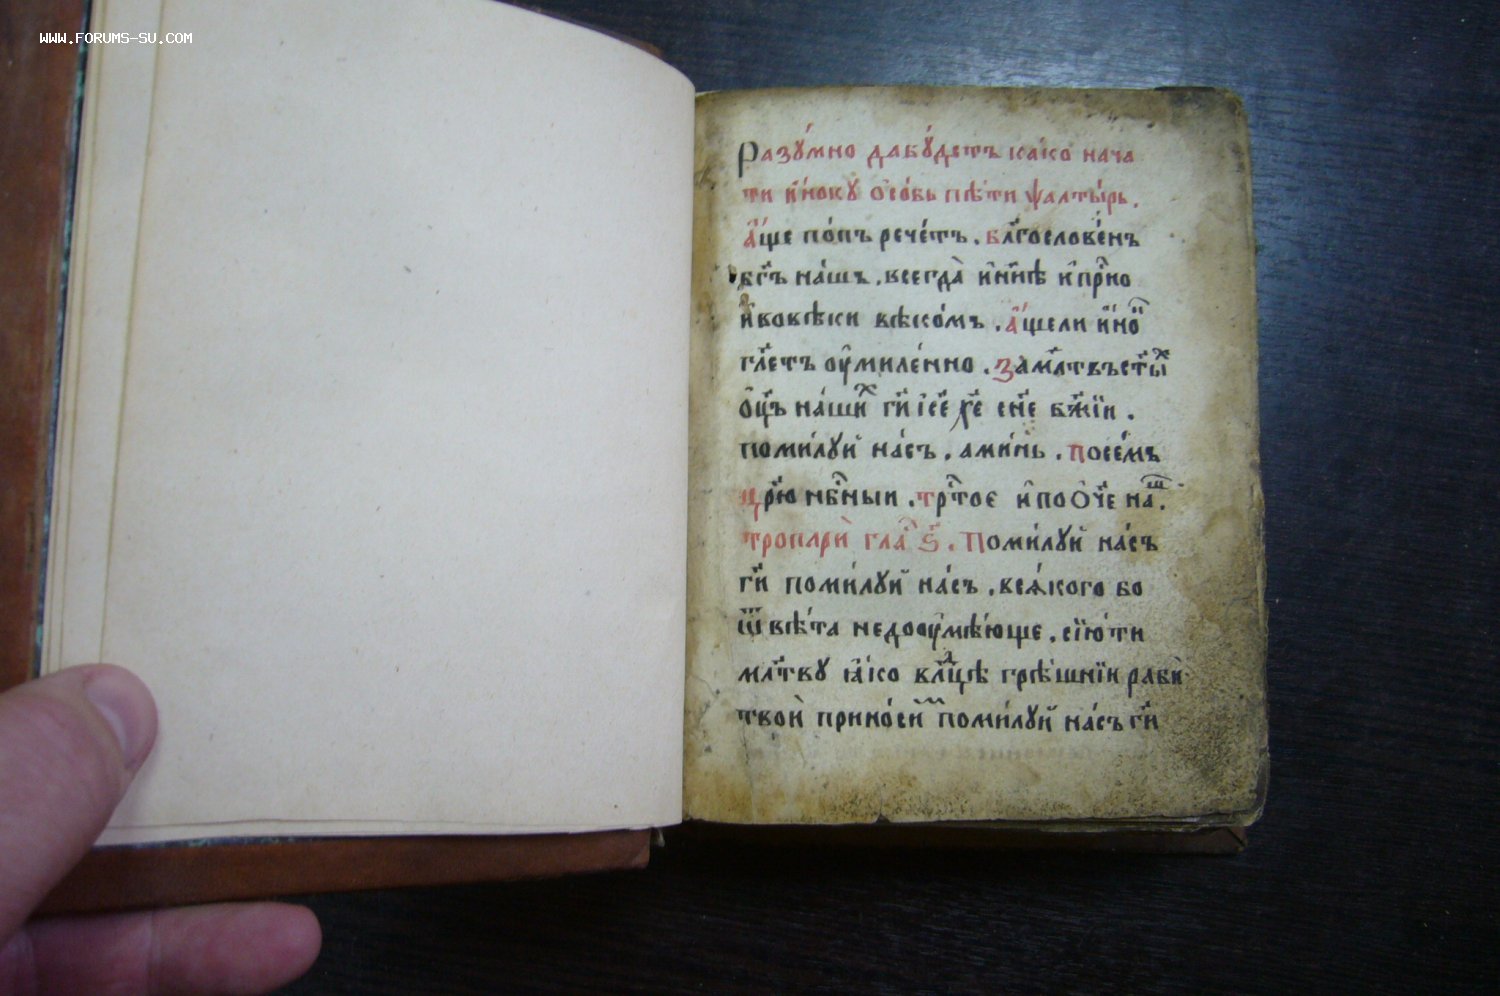 WWW.FORUMS-SU.COM
Разꙋ́мно дабꙋ́детъ ка́ко нача
ти и҆́нокꙋ ѻ҆со́бь пѣ́ти ѱалты́рь.
А҆́ще по́пъ рече́тъ. Бл҃гослове́нъ
бг҃ъ на́шъ. всегда̀ и҆ нн҃ѣ и҆ при́но
и҆ вовѣ́ки вѣко́мъ. А҆́щели и҆́но
гл҃етъ оу҆миле́нно. За мл҃твъ ст҃ы́х
ѻ҆ц҃ъ на́ших гд҃и і҆с҃е хр҃те сн҃е бж҃їи.
поми́лꙋй на́съ. ами́нь. По се́мъ
Цр҃ю нбⷭ҇ныи. Трⷭ҇тое и҆ по Ѻ҆́ч҃е наⷲ҇.
тропари̑ гла́с ѕ҃. Поми́лꙋй на́съ
гд҃и поми́лꙋй на́съ. вся́кого бо
ѿвѣ́та недооу҆мѣ́юще. сїю́ ти
мл҃твꙋ ꙗ҆́ко влⷣцѣ грѣ́шнїи раби̑
твои̑ прино́симъ поми́лꙋй на́съ гд҃и